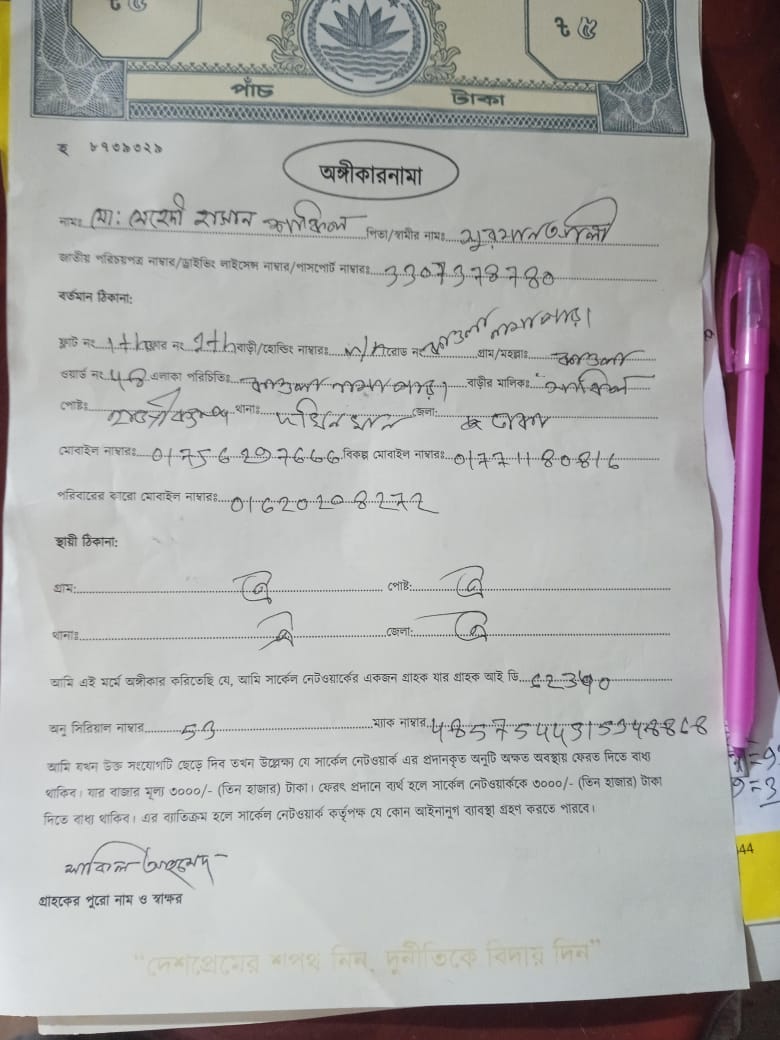 ট ৫ ট ৫
পাঁচ টাকা
ছ ৮৭৩৯৩২৯
অঙ্গীকারনামা
নামঃ মো: মেহেদী হাসান পিতা/স্বামীর নামঃ
জাতীয় পরিচয়পত্র নাম্বার/ড্রাইভিং লাইসেন্স নাম্বার/পাসপোর্ট নাম্বারঃ 3307378780
বর্তমান ঠিকানা:
ফ্লাট নং ফ্লোর নং বাড়ী/হোল্ডিং নাম্বারঃ রোড নং কাওলা নামাপাড়া। গ্রাম/মহল্লাঃ কাওলা
ওয়ার্ড নং এলাকা পরিচিতিঃ কাওলা নামাপাড়া। বাড়ীর মালিকঃ
পোষ্টঃ থানাঃ দক্ষিনখান জেলা: ঢাকা
মোবাইল নাম্বারঃ 01756297666 বিকল্প মোবাইল নাম্বারঃ 01771180816
পরিবারের কারো মোবাইল নাম্বারঃ 01620208272
স্থায়ী ঠিকানা:
গ্রাম: ঐ পোষ্ট: ঐ
থানাঃ ঐ জেলা: ঐ
আমি এই মর্মে অঙ্গীকার করিতেছি যে, আমি সার্কেল নেটওয়ার্কের একজন গ্রাহক যার গ্রাহক আই ডি
অনু সিরিয়াল নাম্বার 53 ম্যাক নাম্বার
আমি যখন উক্ত সংযোগটি ছেড়ে দিব তখন উল্লেক্ষ্য যে সার্কেল নেটওয়ার্ক এর প্রদানকৃত অনুটি অক্ষত অবস্থায় ফেরত দিতে বাধ্য
থাকিব। যার বাজার মূল্য ৩০০০/- (তিন হাজার) টাকা। ফেরৎ প্রদানে ব্যর্থ হলে সার্কেল নেটওয়ার্ককে ৩০০০/- (তিন হাজার) টাকা
দিতে বাধ্য থাকিব। এর ব্যতিক্রম হলে সার্কেল নেটওয়ার্ক কর্তৃপক্ষ যে কোন আইনানুগ ব্যাবস্থা গ্রহণ করতে পারবে।
গ্রাহকের পুরো নাম ও স্বাক্ষর
44
"দেশপ্রেমের শপথ নিন, দুর্নীতিকে বিদায় দিন"